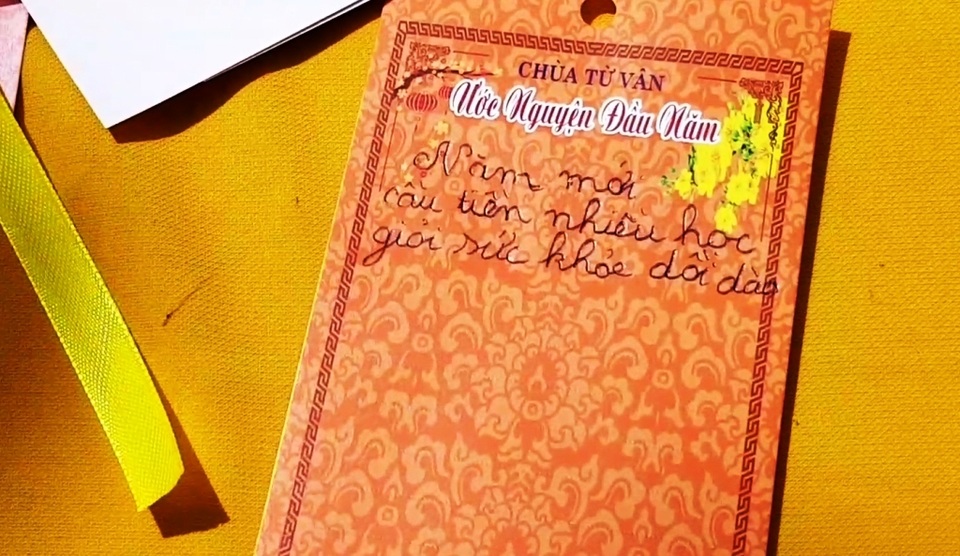 CHÙA TỪ VÂN
Ước Nguyện Đầu Năm
Năm mới
cầu tiền nhiều học
giỏi sức khỏe dồi dào